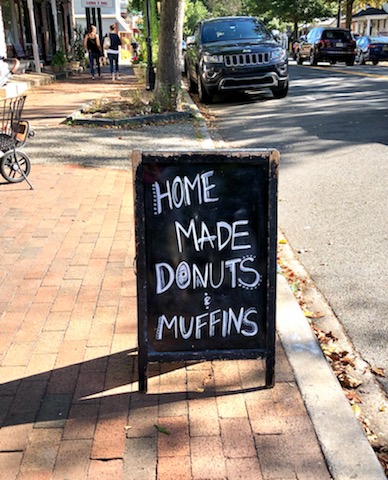 HOME
MADE
DONUTS
&
MUFFINS